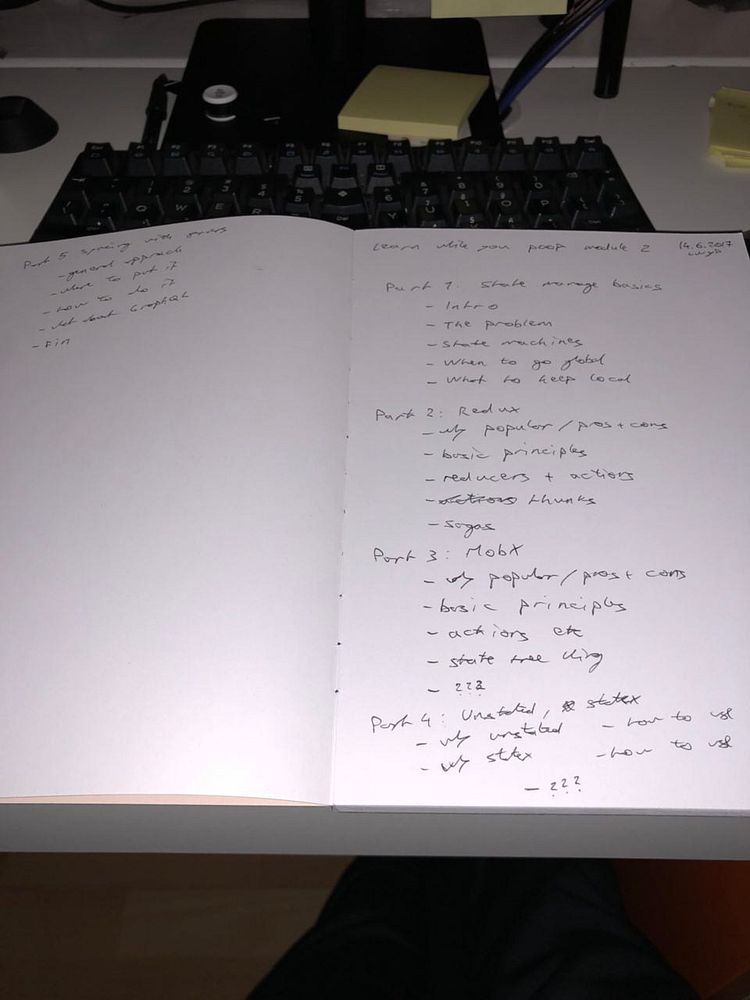 Learn while you poop module 2 14.6.2017
Part 1: State manage basics
- Intro
- The problem
- State machines
- When to go global
- What to keep local
Part 2: Redux
- why popular / pros + cons
- basic principles
- reducers + actions
- actions thunks
- sagas
Part 3: MobX
- why popular / pros + cons
- basic principles
- actions etc
- state tree thing
- ???
Part 4: Unstated, statex
- why unstated - how to use
- why statex - how to use
- ???
Part 5 syncing with servers
- general approach
- where to put it
- how to do it
- what about GraphQL
- Fin